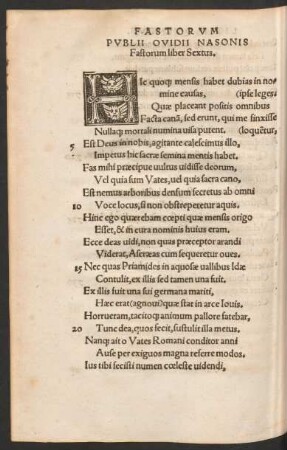 FASTORVM
PVBLII OVIDII NASONIS
Fastorum liber Sextus.
HIc quoq; mensis habet dubias in no-
mine causas, (ipse leges:
Quæ placeant positis omnibus
Facta canā, sed erunt, qui me finxisse
Nullaq; mortali numina uisa putent. (loquētur,
5 Est Deus in nobis, agitante calescimus illo,
Impetus hic sacræ semina mentis habet.
Fas mihi præcipue uultus uidisse deorum,
Vel quia sum Vates, uel quia sacra cano,
Est nemus arboribus densum secretus ab omni
10 Voce locus, si non obstreperetur aquis.
Hinc ego quærebam cœpti quæ mensis origo
Esset, & in cura nominis huius eram.
Ecce deas uidi, non quas præceptor arandi
Viderat, Ascræas cum sequeretur oues.
15 Nec quas Priamides in aquosæ uallibus Idæ
Contulit, ex illis sed tamen una fuit.
Ex illis fuit una sui germana mariti,
Hæc erat (agnoui) quæ stat in arce Iouis.
Horrueram, tacitoq; animum pallore fatebar,
20 Tunc dea, quos fecit, sustulit illa metus.
Nanq; ait o Vates Romani conditor anni
Ause per exiguos magna referre modos.
Ius tibi fecisti numen cœleste uidendi,